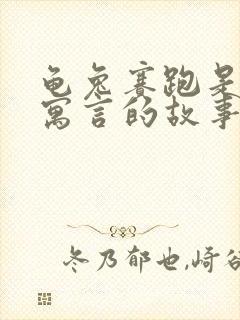 龟兔赛跑是
寓言的故事
冬乃郁也,崎谷